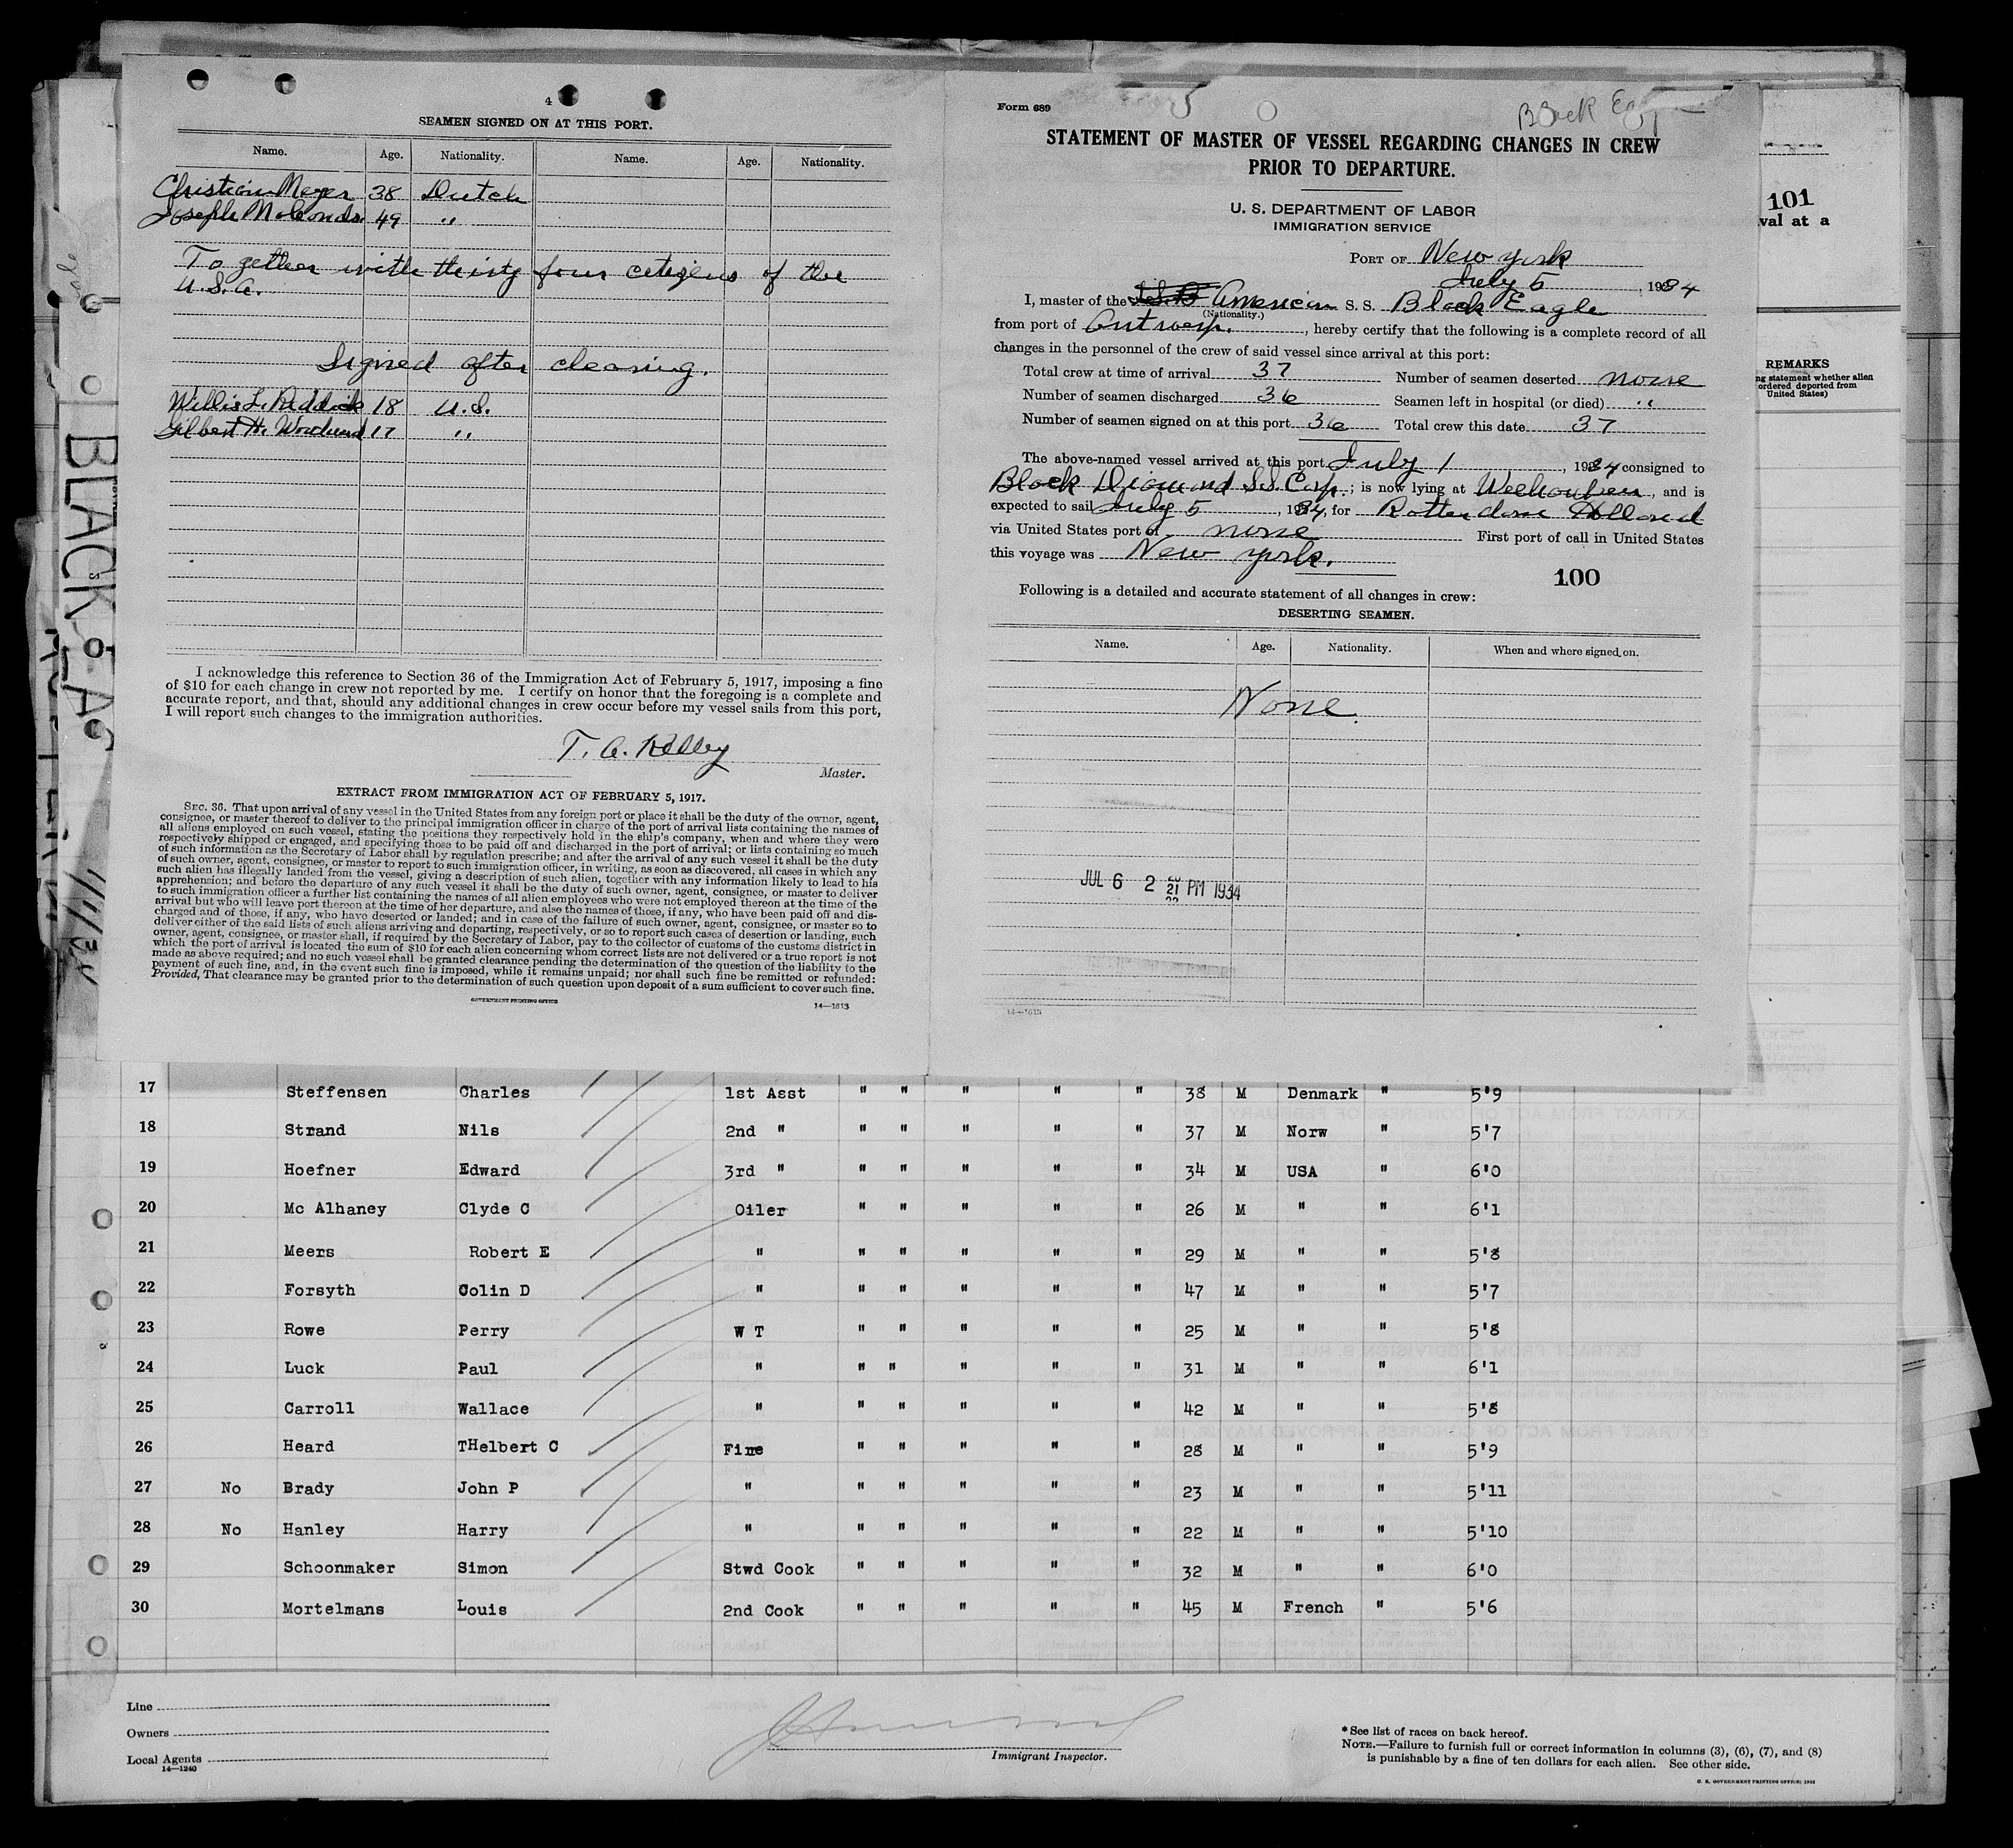 4
SEAMEN SIGNED ON AT THIS PORT.
Name. Age. Nationality. Name. Age. Nationality.
Christian Meyer 38 Dutch
Joseph 49 "
To gether with thirty four citizens of the
U.S.A.
Signed after clearing.
Willis L. Reddick 18 U.S.
Gilbert H. 17 "
I acknowledge this reference to Section 36 of the Immigration Act of February 5, 1917, imposing a fine
of $10 for each change in crew not reported by me. I certify on honor that the foregoing is a complete and
accurate report, and that, should any additional changes in crew occur before my vessel sails from this port,
I will report such changes to the immigration authorities.
T. A. Kelley
Master.
EXTRACT FROM IMMIGRATION ACT OF FEBRUARY 5, 1917.
SEC. 36. That upon arrival of any vessel in the United States from any foreign port or place it shall be the duty of the owner, agent,
consignee, or master thereof to deliver to the principal immigration officer in charge of the port of arrival lists containing the names of
all aliens employed on such vessel, stating the positions they respectively hold in the ship's company, when and where they were
respectively shipped or engaged, and specifying those to be paid off and discharged in the port of arrival; or lists containing so much
of such information as the Secretary of Labor shall by regulation prescribe; and after the arrival of any such vessel it shall be the duty
of such owner, agent, consignee, or master to report to such immigration officer, in writing, as soon as discovered, all cases in which any
such alien has illegally landed from the vessel, giving a description of such alien, together with any information likely to lead to his
apprehension; and before the departure of any such vessel it shall be the duty of such owner, agent, consignee, or master to deliver
to such immigration officer a further list containing the names of all alien employees who were not employed thereon at the time of the
arrival but who will leave port thereon at the time of her departure, and also the names of those, if any, who have been paid off and dis-
charged and of those, if any, who have deserted or landed; and in case of the failure of such owner, agent, consignee, or master so to
deliver either of the said lists of such aliens arriving and departing, respectively, or so to report such cases of desertion or landing, such
owner, agent, consignee, or master shall, if required by the Secretary of Labor, pay to the collector of customs of the customs district in
which the port of arrival is located the sum of $10 for each alien concerning whom correct lists are not delivered or a true report is not
made as above required; and no such vessel shall be granted clearance pending the determination of the question of the liability to the
payment of such fine, and, in the event such fine is imposed, while it remains unpaid; nor shall such fine be remitted or refunded:
Provided, That clearance may be granted prior to the determination of such question upon deposit of a sum sufficient to cover such fine.
GOVERNMENT PRINTING OFFICE
14—1613
Form 689
Black Eag
STATEMENT OF MASTER OF VESSEL REGARDING CHANGES IN CREW
PRIOR TO DEPARTURE.
U. S. DEPARTMENT OF LABOR
IMMIGRATION SERVICE
PORT OF New York
July 5, 1934
I, master of the American S. S. Black Eagle
(Nationality.)
from port of Antwerp., hereby certify that the following is a complete record of all
changes in the personnel of the crew of said vessel since arrival at this port:
Total crew at time of arrival 37 Number of seamen deserted none
Number of seamen discharged 36 Seamen left in hospital (or died) "
Number of seamen signed on at this port 36 Total crew this date 37
The above-named vessel arrived at this port July 1, 1934 consigned to
Black Diamond S.S. Corp.; is now lying at Weehawken, and is
expected to sail July 5, 1934, for Rotterdam Holland
via United States port of none First port of call in United States
this voyage was New York.
100
Following is a detailed and accurate statement of all changes in crew:
DESERTING SEAMEN.
Name. Age. Nationality. When and where signed on.
None.
JUL 6 2 21 PM 1934
14—1613
101
val at a
REMARKS
ng statement whether alien
ordered deported from
United States)
BLACK EAG
17 Steffensen Charles 1st Asst " " " " " 38 M Denmark " 5'9
18 Strand Nils 2nd " " " " " " 37 M Norw " 5'7
19 Hoefner Edward 3rd " " " " " " 34 M USA " 6'0
20 Mc Alhaney Clyde C Oiler " " " " " 26 M " " 6'1
21 Meers Robert E " " " " " " 29 M " " 5'8
22 Forsyth Colin D " " " " " " 47 M " " 5'7
23 Rowe Perry W T " " " " " 25 M " " 5'8
24 Luck Paul " " " " " " 31 M " " 6'1
25 Carroll Wallace " " " " " " 42 M " " 5'8
26 Heard THelbert C Fire " " " " " 28 M " " 5'9
27 No Brady John P " " " " " " 23 M " " 5'11
28 No Hanley Harry " " " " " " 22 M " " 5'10
29 Schoonmaker Simon Stwd Cook " " " " " 32 M " " 6'0
30 Mortelmans Louis 2nd Cook " " " " " 45 M French " 5'6
Line
Owners
Local Agents
14—1240
Immigrant Inspector.
*See list of races on back hereof.
NOTE.—Failure to furnish full or correct information in columns (3), (6), (7), and (8)
is punishable by a fine of ten dollars for each alien. See other side.
U. S. GOVERNMENT PRINTING OFFICE: